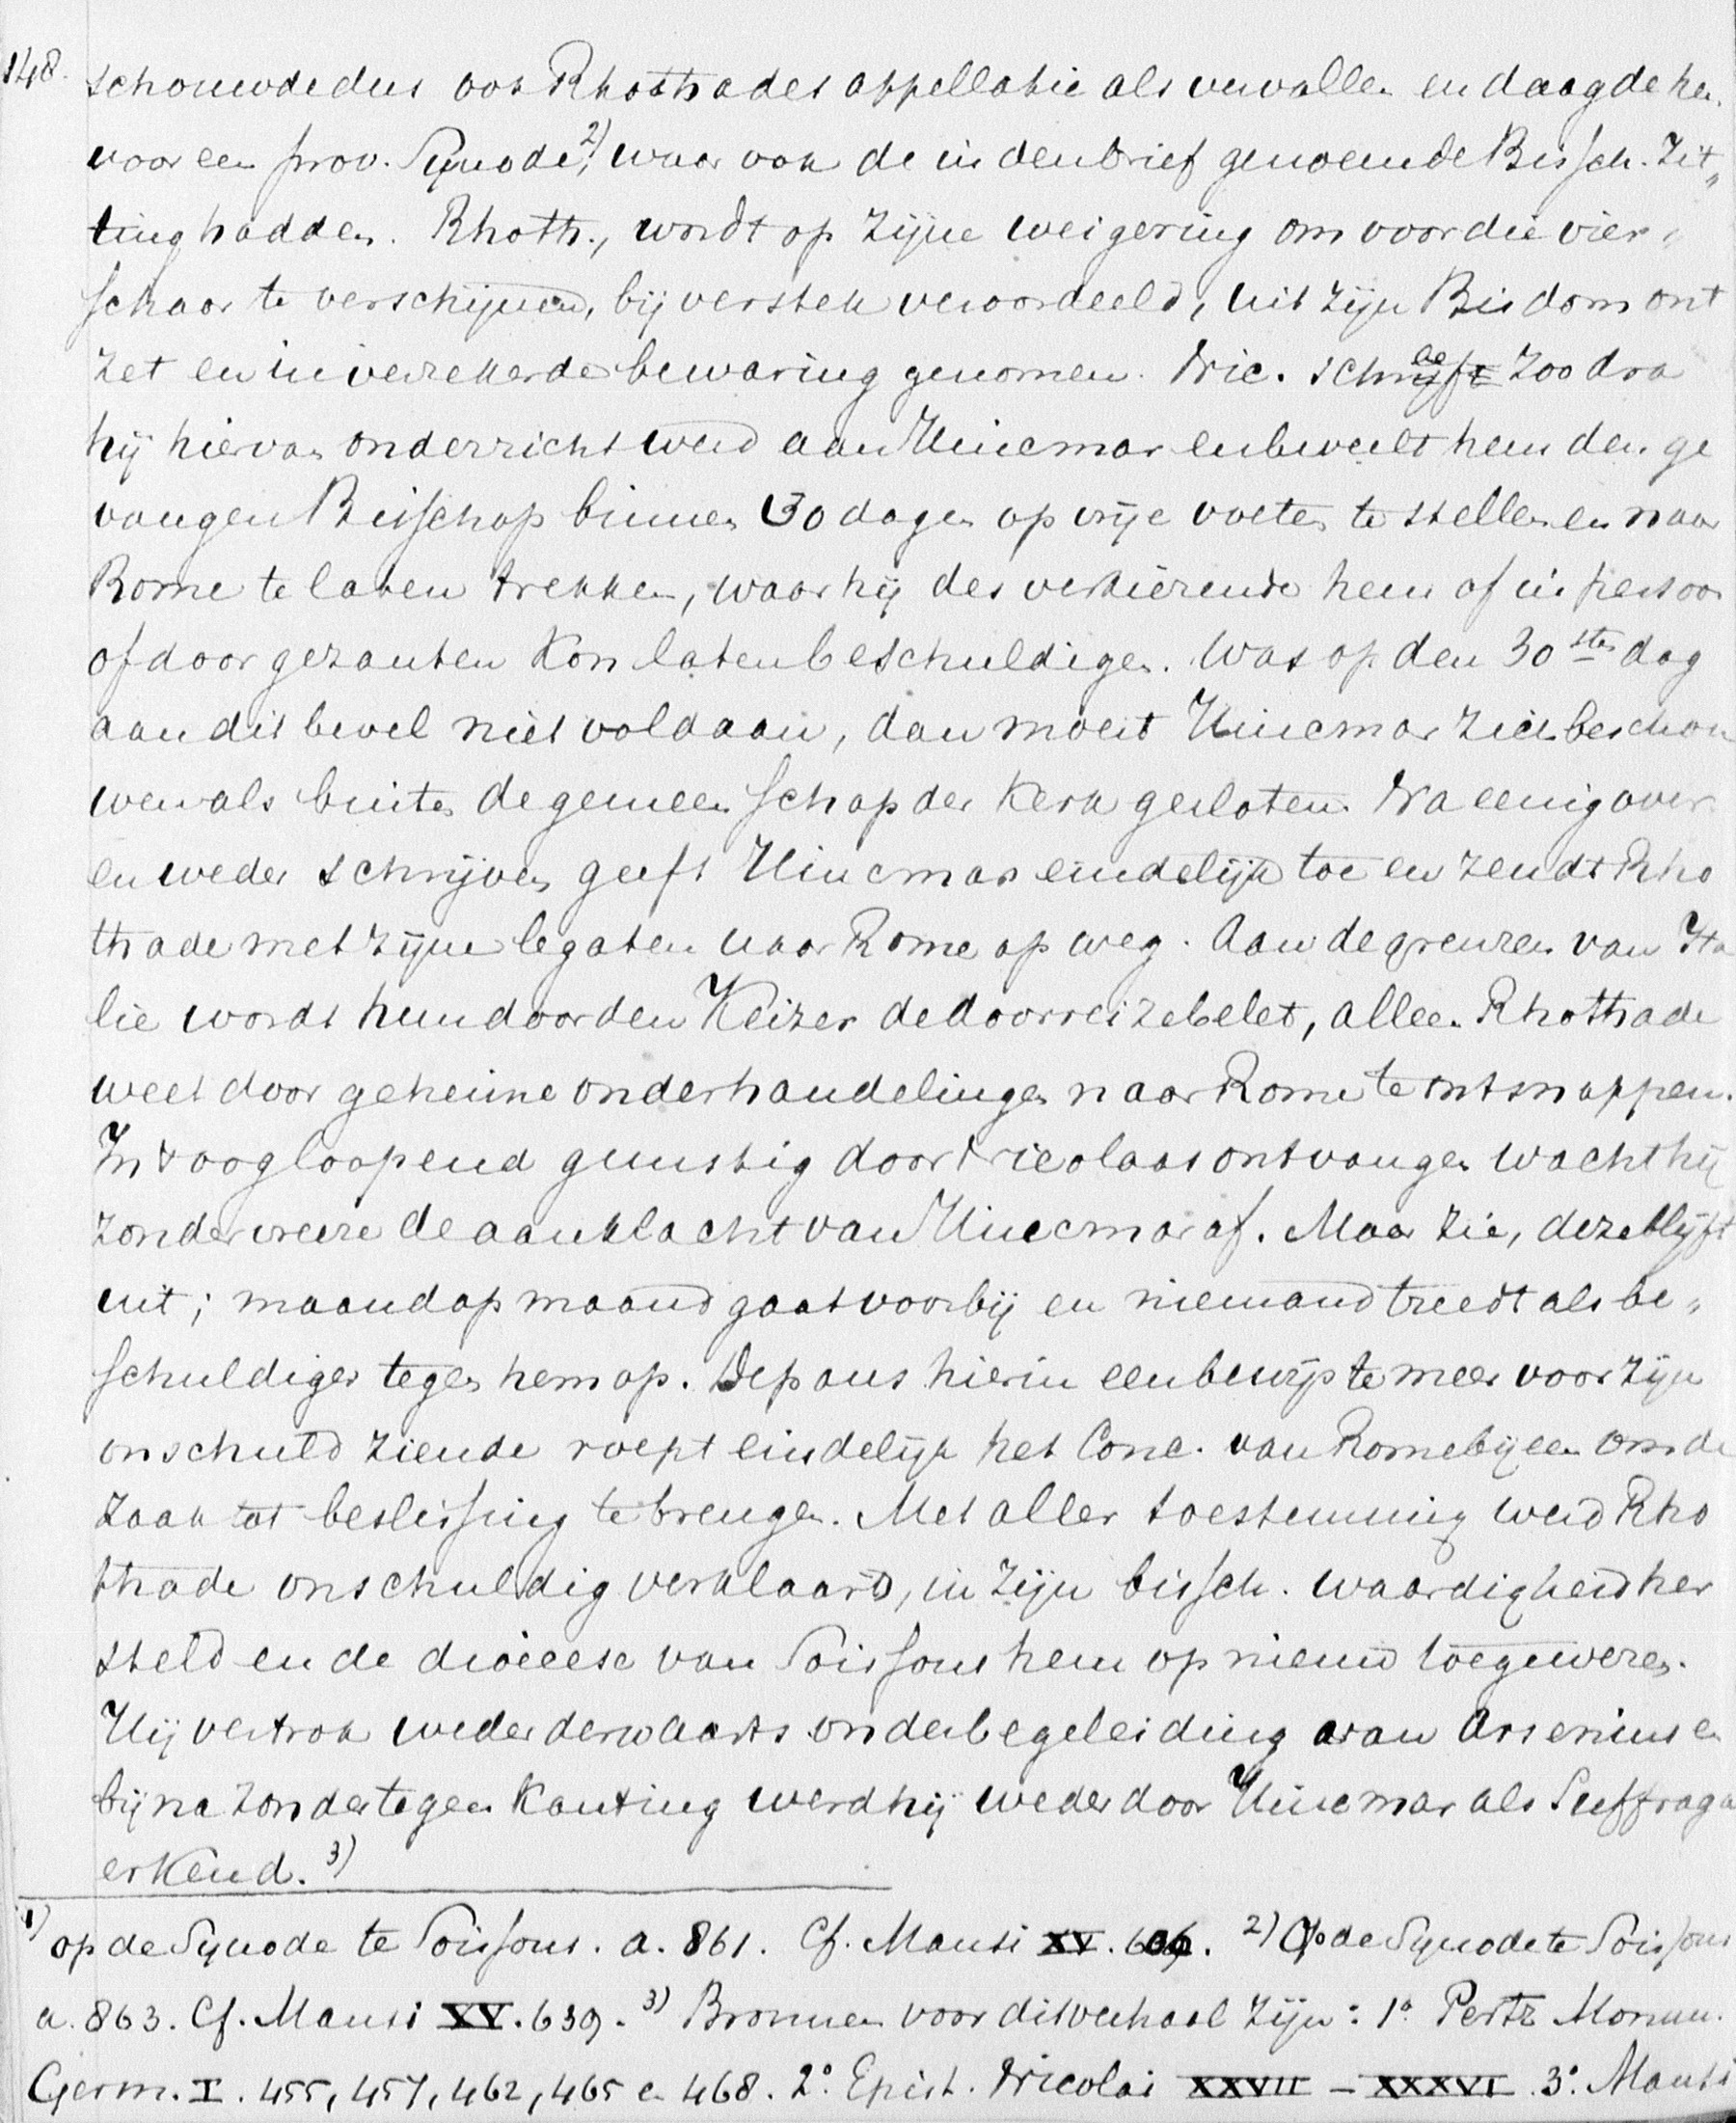 148.
schouwde dus ook Rhothades appellatie als vervallen en daagde hem
voor een prov. Synode,2) waar ook de in den brief genoemde Bissch. zit„
ting hadden. Rhoth., wordt op zijne weigering om voor die vier„
schaar te verschijnen, bij verstek veroordeeld, uit zijn Bisdom ont
zet en in verzekerde bewaring genomen. Nic. schreef zoodra
hij hiervan onderricht werd aan Hincmar en beveelt hem den ge
vangen Bisschop binnen 30 dagen op vrije voeten te stellen en naar
Rome te laten trekken, waar hij des verkiezende hem of in persoon
of door gezanten kon laten beschuldigen. Was op den 30sten dag
aan dit bevel niet voldaan, dan moest Hincmar zich beschou
wen als buiten de gemeenschap der Kerk gesloten. Na eenig over
en weder schrijven geeft Hincmar eindelijk toe en zendt Rho
thade met zijne legaten naar Rome op weg. Aan de grenzen van Ita
lie wordt hun door den Keizer de doorreize belet, alleen Rhothade
weet door geheime onderhandelingen naar Rome te ontsnappen.
In 't oogloopend gunstig door Nicolaas ontvangen wacht hij
zonder vreeze de aanklacht van Hincmar af. Maar zie, deze blijft
uit; maand op maand gaat voorbij en niemand treedt als be„
schuldiger tegen hem op. De paus hierin een bewijs te meer voor zijn
onschuld ziende roept eindelijk het Conc. van Rome bijeen om de
zaak tot beslissing te brengen. Met aller toestemming werd Rho
thade onschuldig verklaard, in zijn bissch. waardigheid her
steld en de diocese van Soissons hem op nieuw toegewezen.
Hij vertrok weder derwaarts onder begeleiding van Arsenius en
bijna zonder tegenkanting werd hij weder door Hincmar als Suffragaan
erkend.3)
1) op de Synode te Soissons. a. 861. Cf. Mansi XV. 2) Op de Synode te Soissons
a. 863. Cf. Mansi XV. 639. 3) Bronnen voor dit verhaal zijn: 1° Pertz Monum.
Germ. I. 455, 457, 462, 465 en 468. 2° Epist. Nicolai XXVII – XXXVI. 3° Mansi